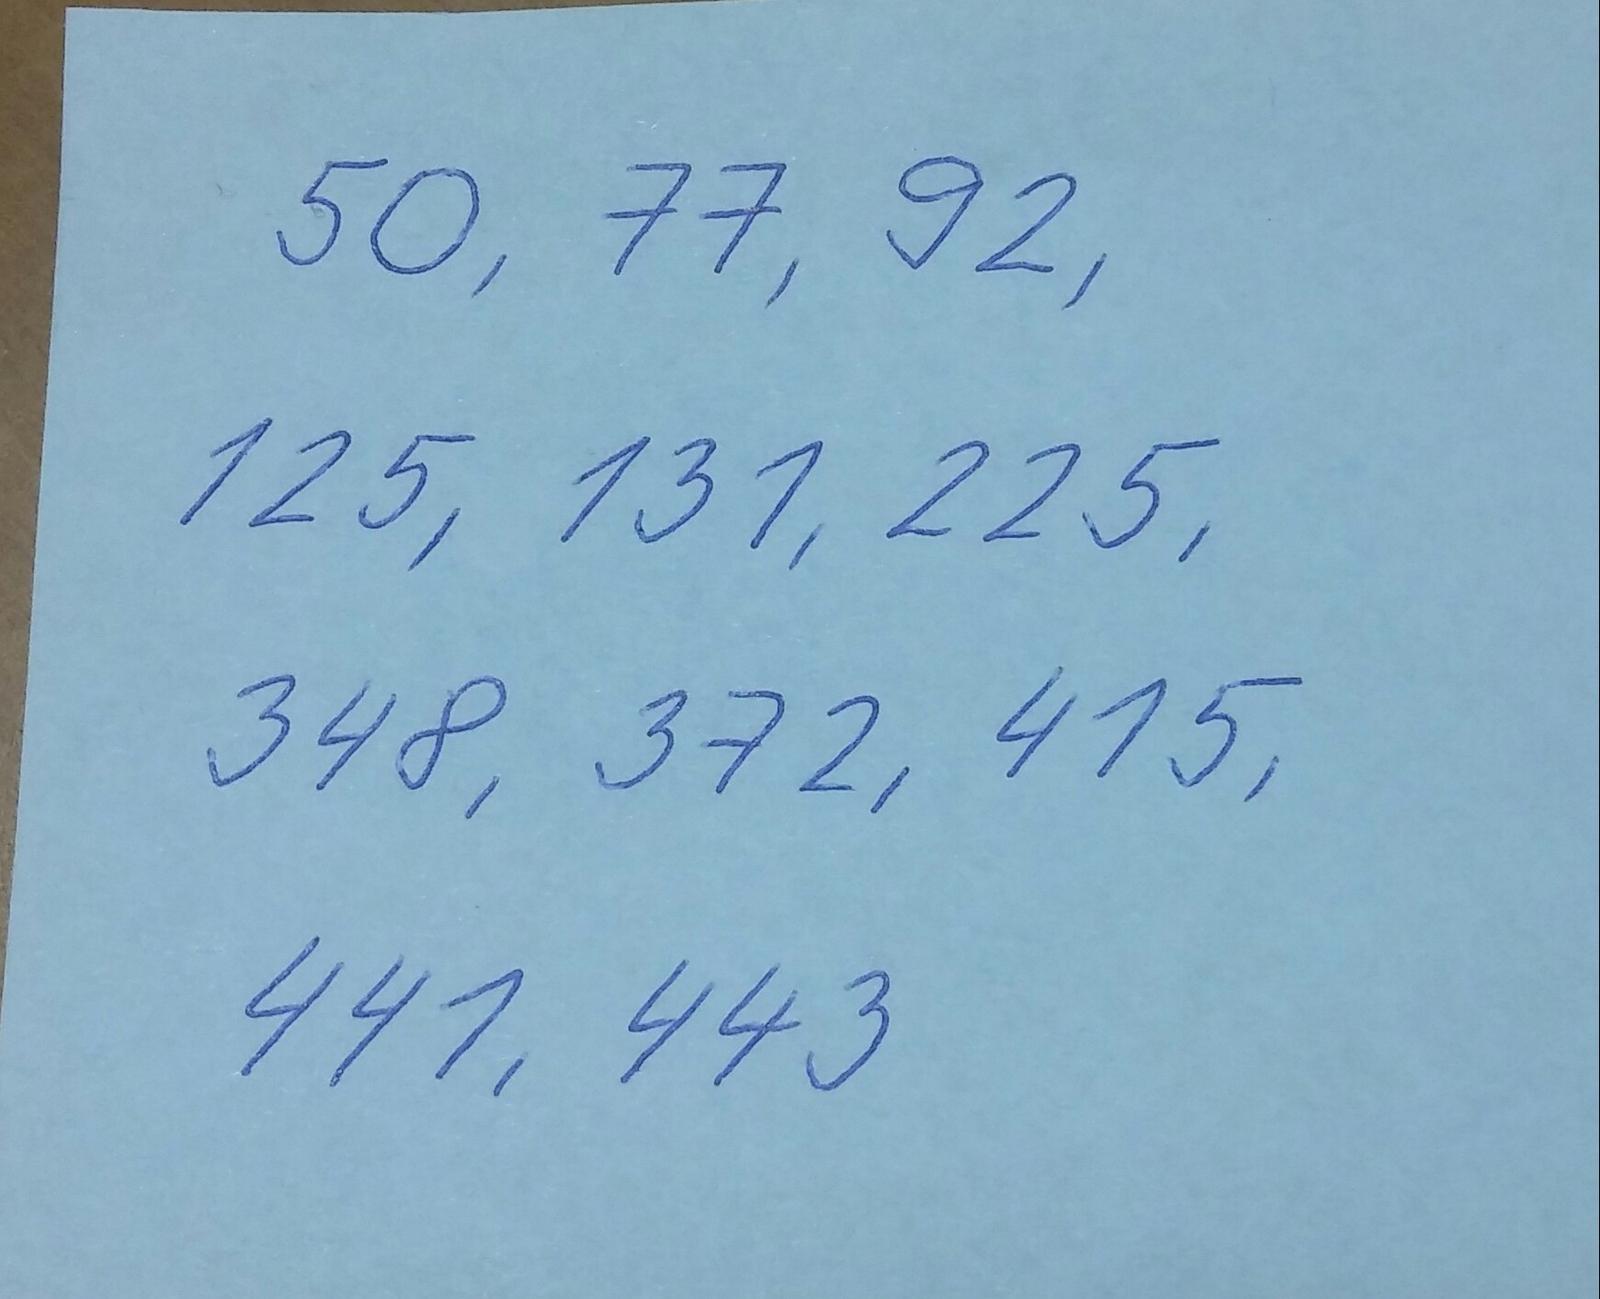 50, 77, 92,
125, 131, 225,
348, 372, 415,
441, 443